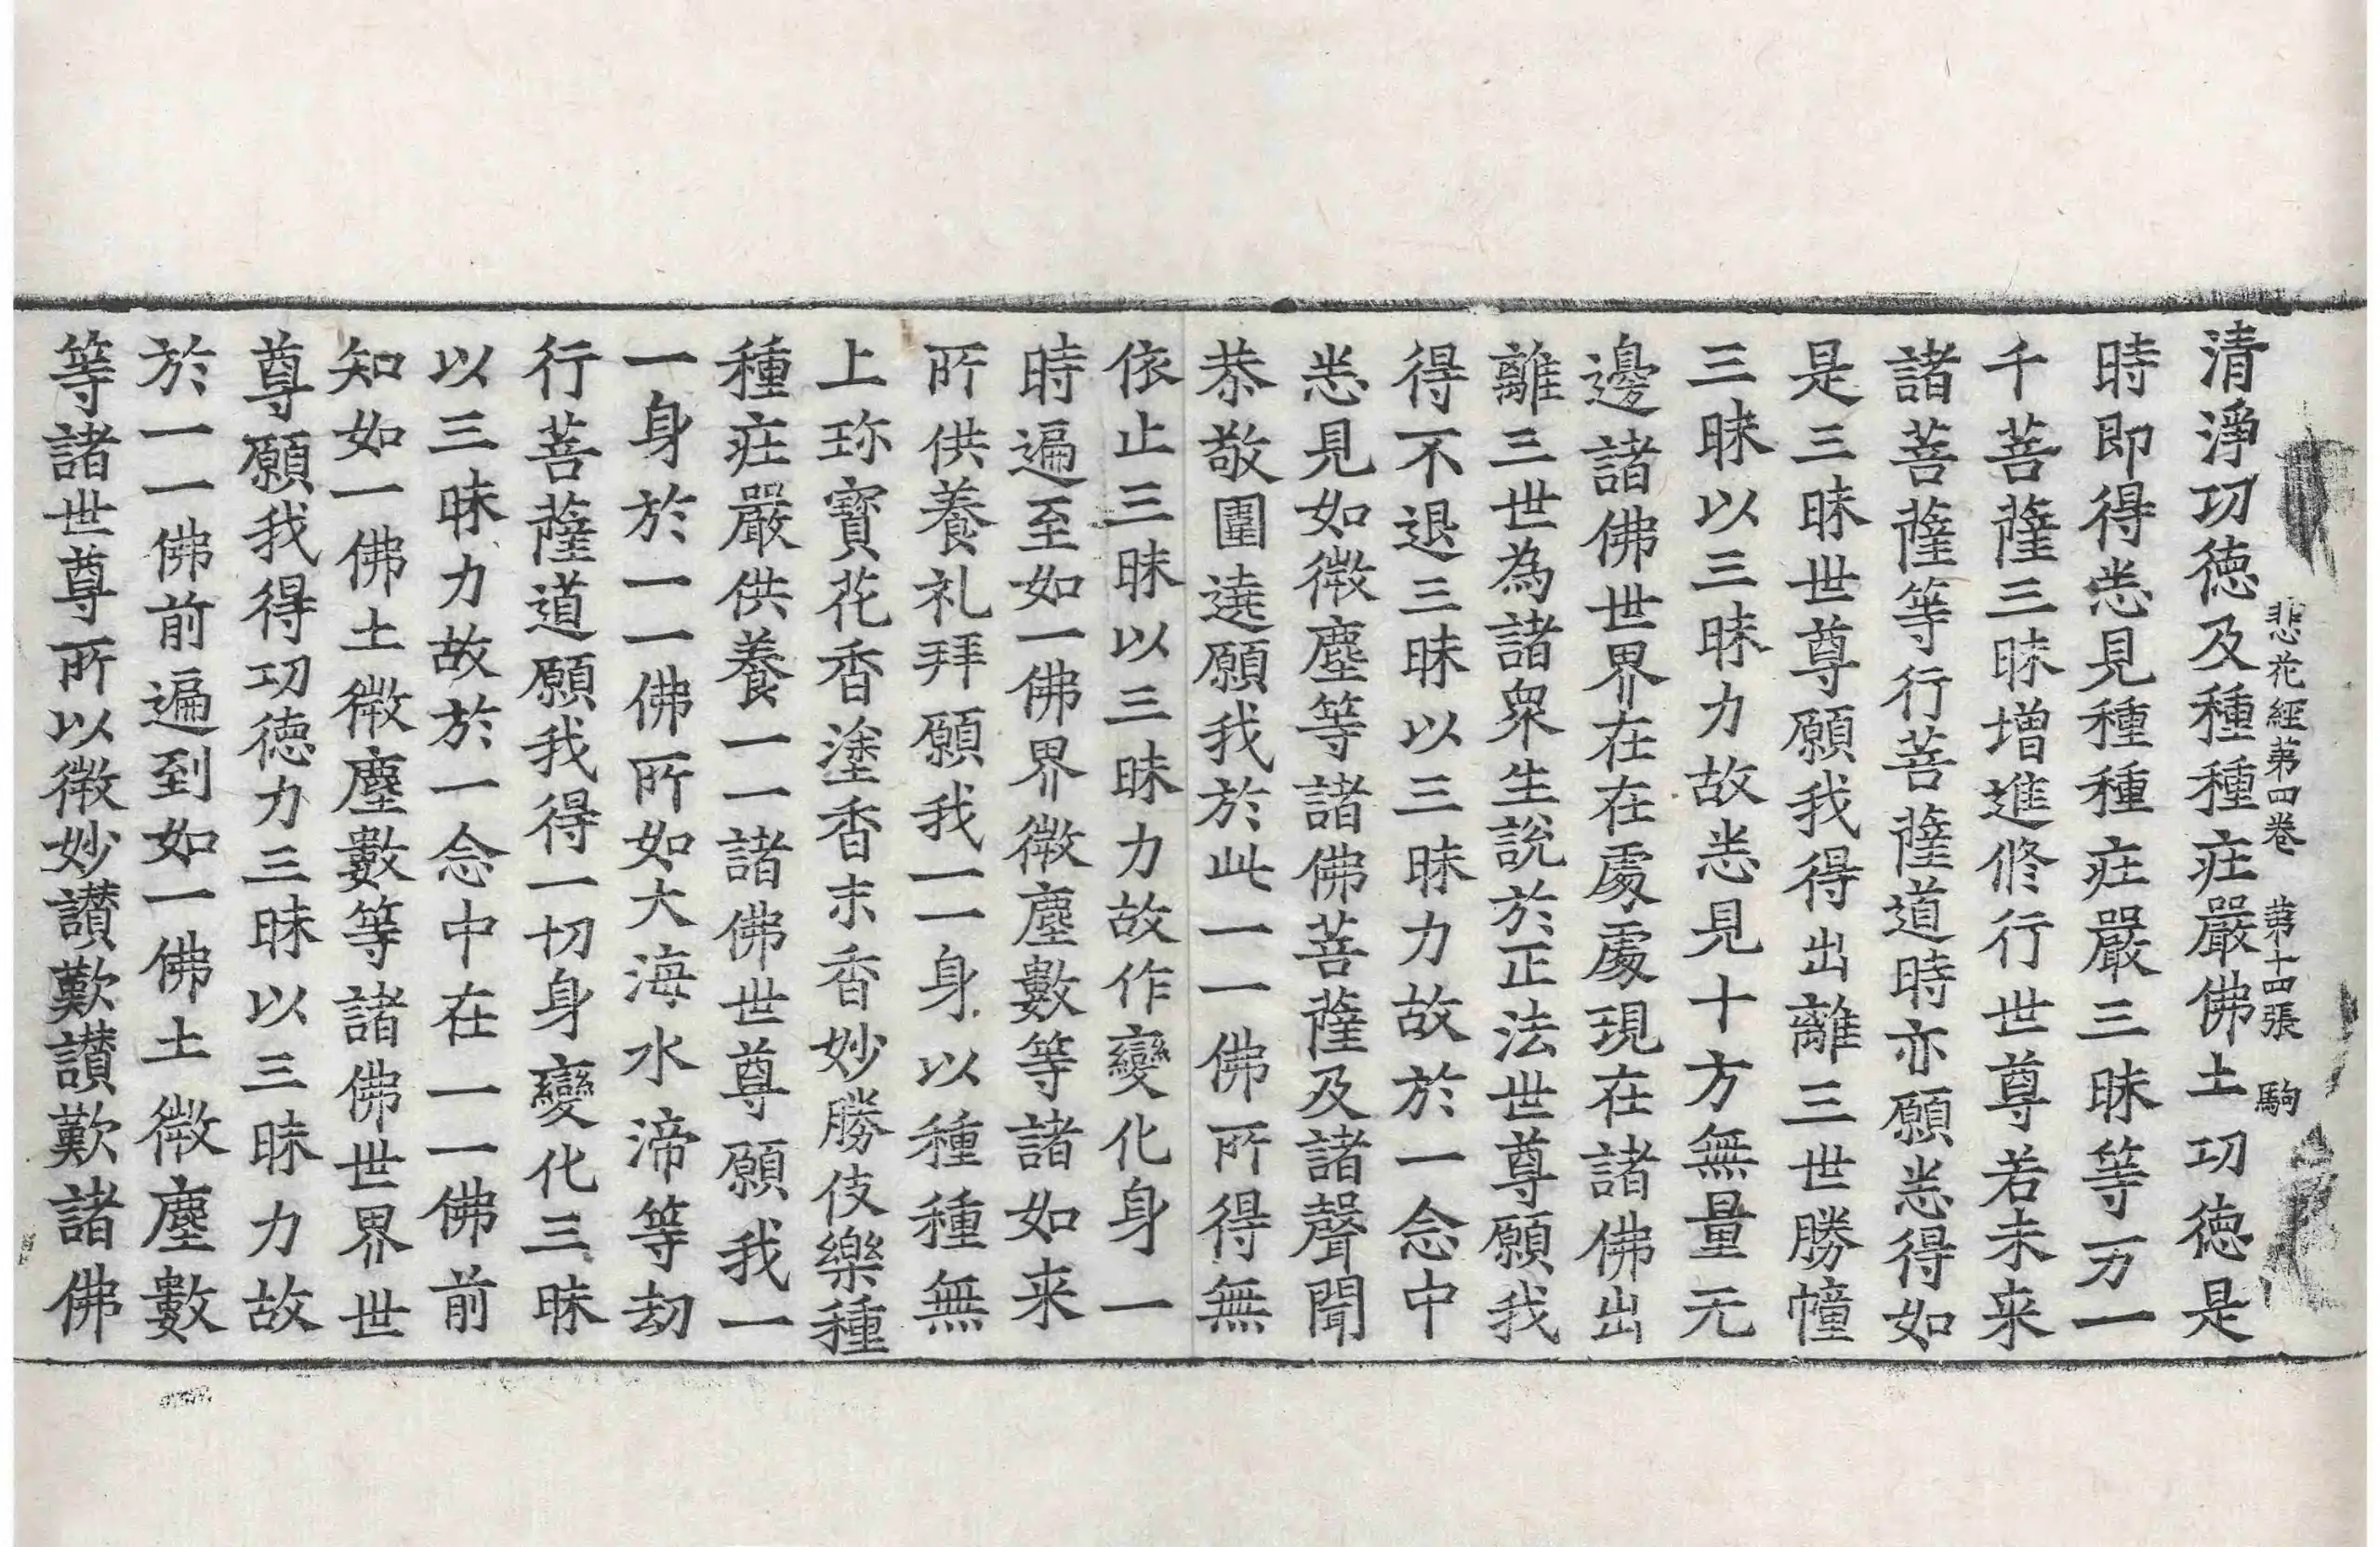 悲花經第四卷　第十四張　駒
清淨功徳及種種庄嚴佛土功徳是
時即得悉見種種庄嚴三昧等万一
千菩薩三昧增進修行世尊若未来
諸菩薩等行菩薩道時亦願悉得如
是三昧世尊願我得出離三世勝幢
三昧以三昧力故悉見十方無量无
邊諸佛世界在在處處現在諸佛出
離三世為諸衆生說於正法世尊願我
得不退三昧以三昧力故於一念中
悉見如微塵等諸佛菩薩及諸聲聞
恭敬圍遶願我於此一一佛所得無
依止三昧以三昧力故作變化身一
時遍至如一佛界微塵數等諸如来
所供養礼拜願我一一身以種種無
上珎寳花香塗香末香妙勝伎樂種
種庄嚴供養一一諸佛世尊願我一
一身於一一佛所如大海水渧等劫
行菩薩道願我得一切身變化三昧
以三昧力故於一念中在一一佛前
知如一佛土微塵數等諸佛世界世
尊願我得功徳力三昧以三昧力故
於一一佛前遍到如一佛土微塵數
等諸世尊所以微妙讃歎讃歎諸佛